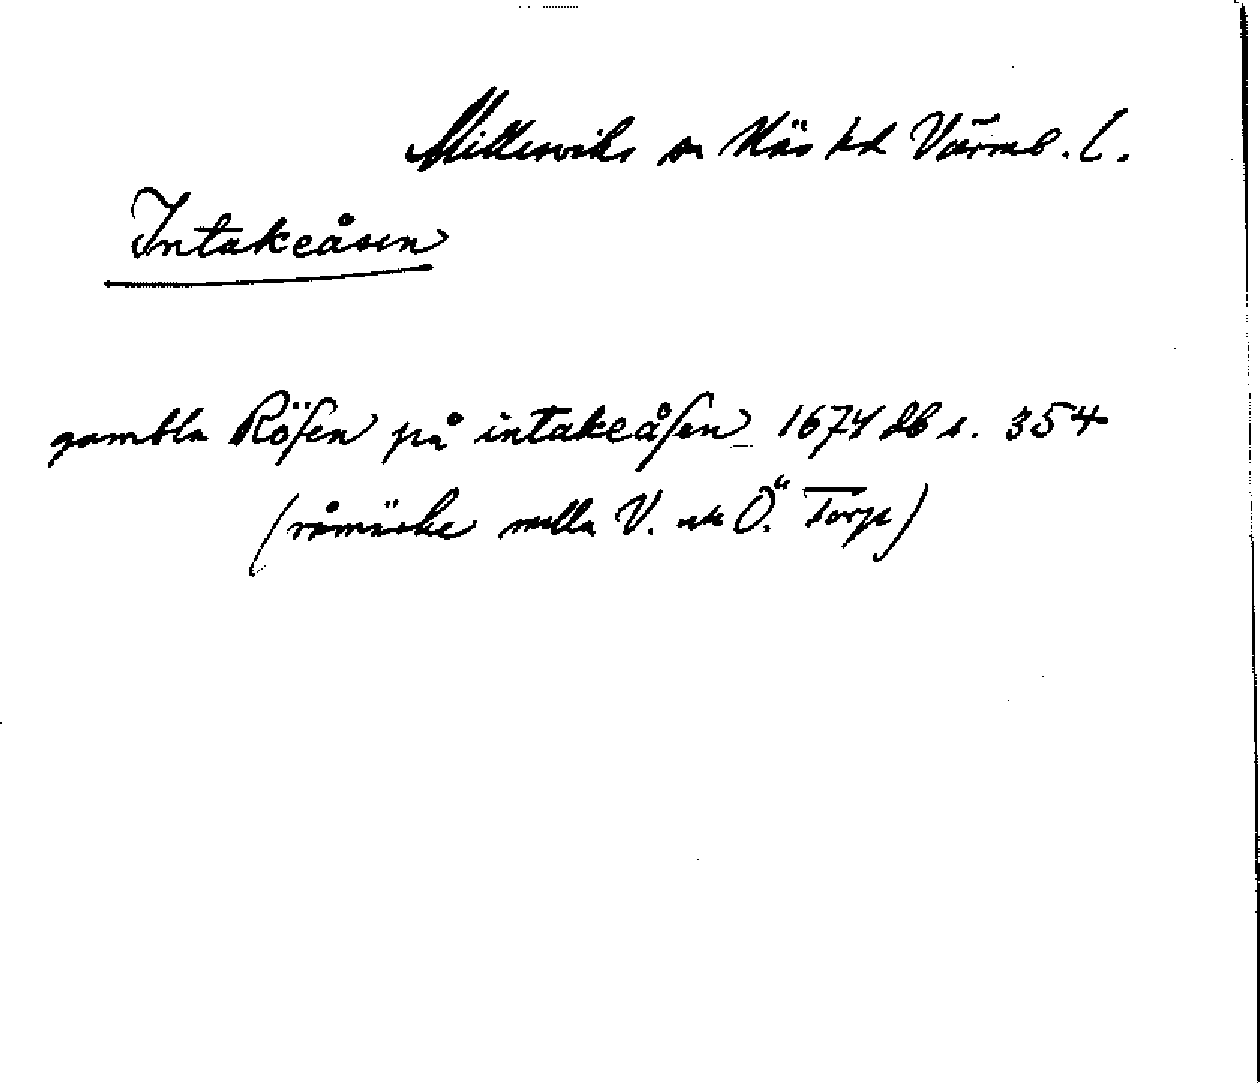 Millesviks sn Näs hd Värml. l.
Intakeåsen
gambla Röſen på intakeåſen 1674 db s. 354
(råmärke mella V. och Ö. Torp)